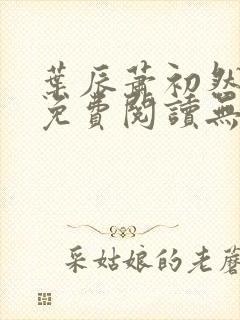 葉辰蕭初然
免費閱讀無
采姑娘的老蘑